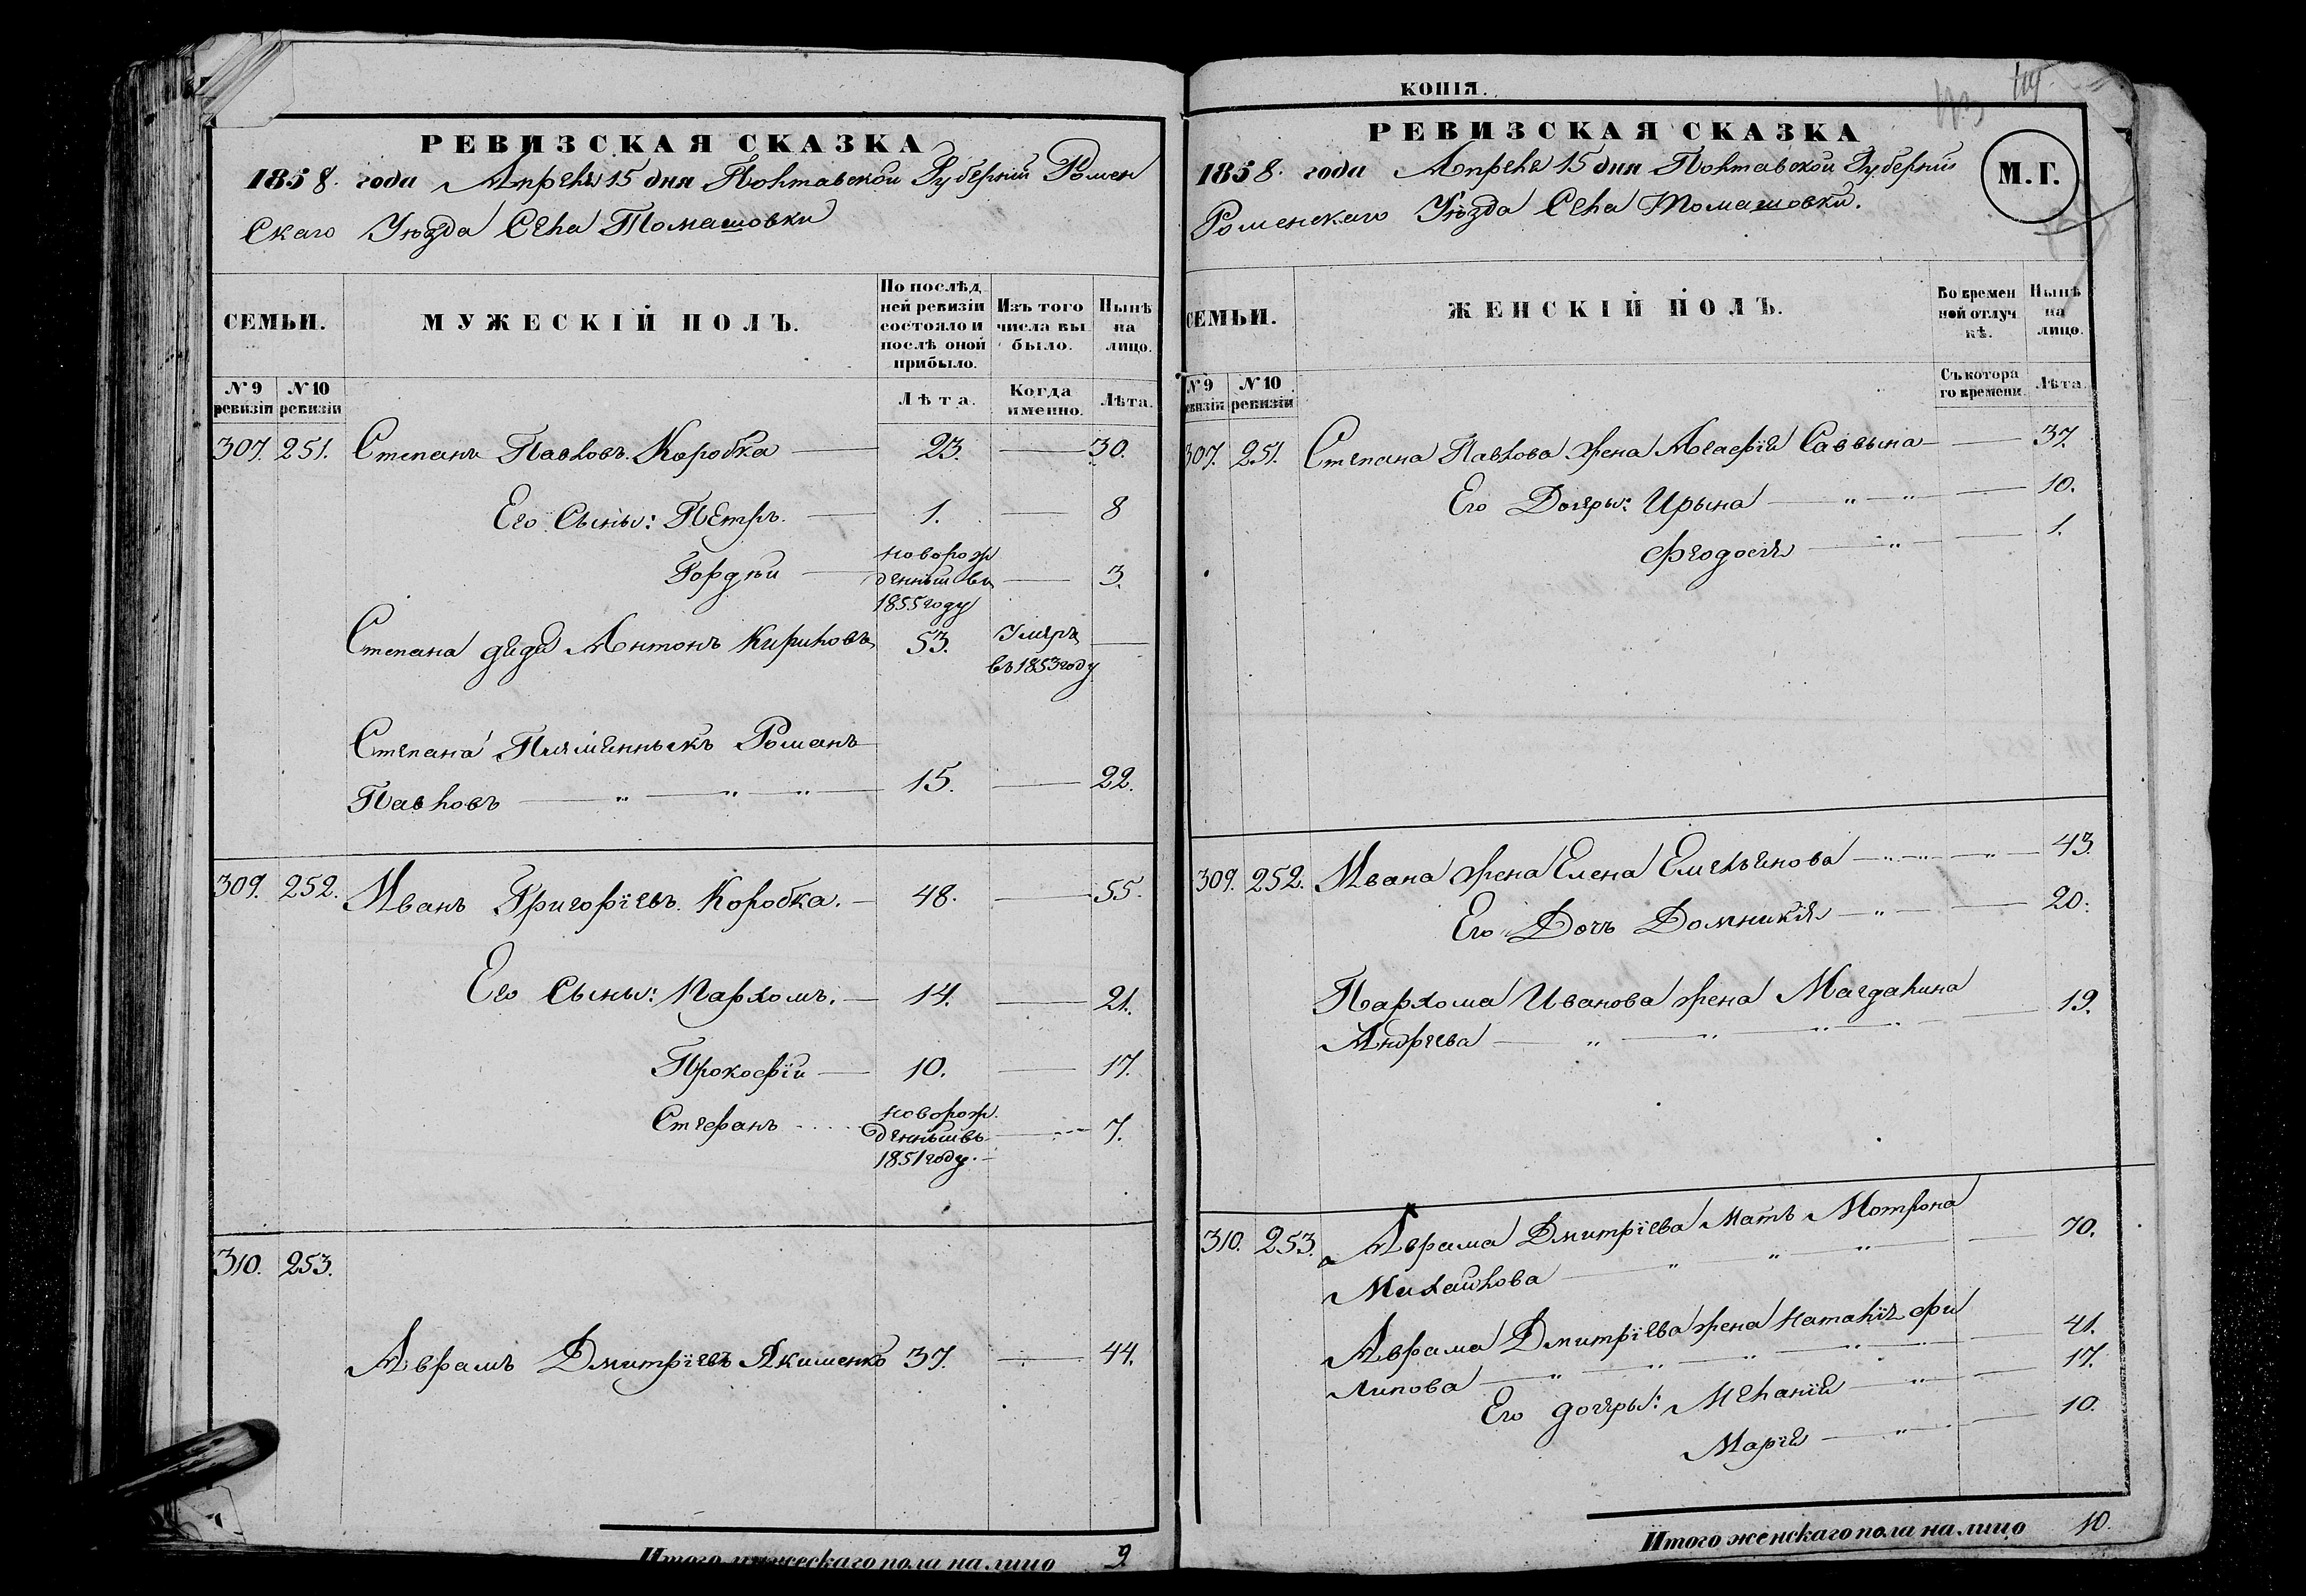 РЕВИЗСКАЯ СКАЗКА
1858. года Апреля 15 дня Полтавской Губернии Ромен
скаго Уѣзда Села Томашовки
СЕМЬИ.
МУЖЕСКІЙ ПОЛЪ.
По послѣд
ней ревизіи
состояло и
послѣ оной
прибыло.
Изъ того
числа вы
было.
Нынѣ
на
лицо.
№ 9
ревизіи
№ 10
ревизіи
Лѣта.
Когда
именно.
Лѣта.
307. 251. Степанъ Павловъ Коробка 23. 30.
Его Сыны: Петръ 1. 8
Гордѣй новорож
денный въ
1855 году 3.
Степана дядя Антонъ Кириловъ 53. Умеръ
въ 1853 году
Степана Племянныкъ Романъ
Павловъ 15. 22.
309. 252. Иванъ Григоріевъ Коробка. 48. 55.
Его Сыны: Пархомъ. 14. 21.
Прокофій 10. 17.
Стефанъ новорож
денный въ
1851 году. 7.
310. 253.
Аврамъ Дмитріевъ Якименко 37. 44.
Итого мужескаго пола на лицо 9.
КОПІЯ.
РЕВИЗСКАЯ СКАЗКА
1858. года Апреля 15 дня Полтавской Губернии
Роменскаго Уѣзда Села Томашовки.
М.Г.
СЕМЬИ.
ЖЕНСКІЙ ПОЛЪ.
Во времен
ной отлуч
кѣ.
Нынѣ
на
лицо.
№ 9
ревизіи
№ 10
ревизіи
Съ котора
го времени.
Лѣта.
307. 251. Степана Павлова жена Агафія Саввына 37.
Его Дочры: Ирына 10.
Феодосія 1.
309. 252. Ивана жена Елена Емельянова 43.
Его Дочь Домникія 20.
Пархома Иванова жена Магдалина
Андреева 19.
310. 253. Аврама Дмитріева Мать Мотрона
Михайлова 70.
Аврама Дмитріева жена Наталія Фи
липова 41.
Его дочры: Меланія 17.
Марія 10.
Итого женскаго пола на лицо 10.